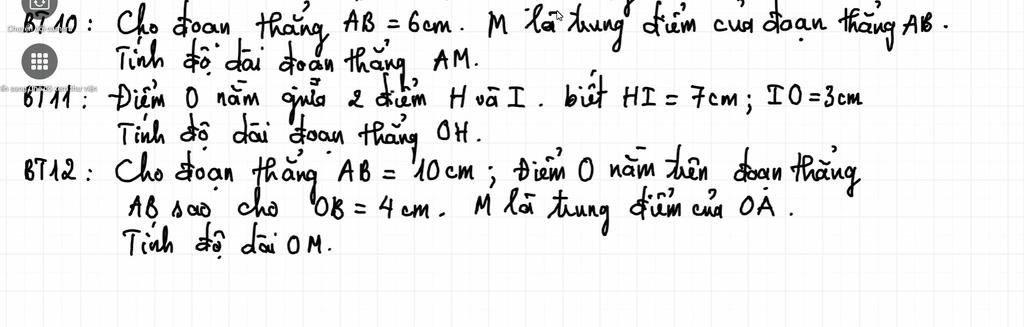 BT10: Cho đoạn thẳng AB = 6cm. M là trung điểm của đoạn thẳng AB.
Tính độ dài đoạn thẳng AM.
BT11: Điểm O nằm giữa 2 điểm H và I. biết HI = 7cm; IO = 3cm
Tính độ dài đoạn thẳng OH.
BT12: Cho đoạn thẳng AB = 10cm; Điểm O nằm trên đoạn thẳng
AB sao cho OB = 4cm. M là trung điểm của OA.
Tính độ dài OM.